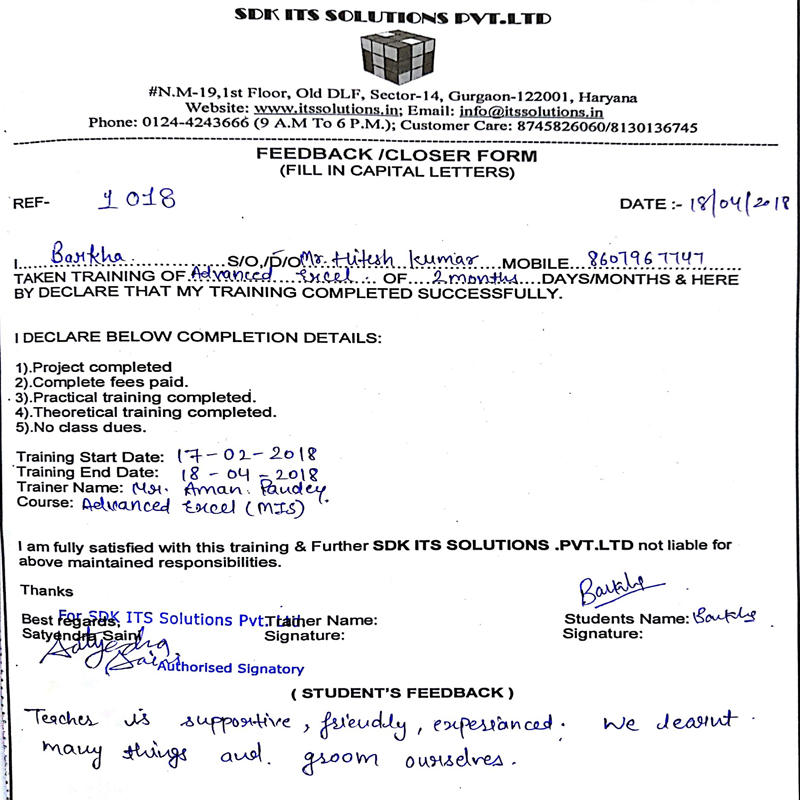 SDK ITS SOLUTIONS PVT.LTD
#N.M-19,1st Floor, Old DLF, Sector-14, Gurgaon-122001, Haryana
Website: www.itssolutions.in; Email: info@itssolutions.in
Phone: 0124-4243666 (9 A.M To 6 P.M.); Customer Care: 8745826060/8130136745
FEEDBACK /CLOSER FORM
(FILL IN CAPITAL LETTERS)
REF- 1018 DATE :- 18/04/2018
I.....Barkha.....S/O,/D/O Mr. Hitesh Kumar...MOBILE..8607967747
TAKEN TRAINING OF Advanced Excel... OF ....2 months....DAYS/MONTHS & HERE
BY DECLARE THAT MY TRAINING COMPLETED SUCCESSFULLY.
I DECLARE BELOW COMPLETION DETAILS:
1).Project completed
2).Complete fees paid.
3).Practical training completed.
4).Theoretical training completed.
5).No class dues.
Training Start Date: 17-02-2018
Training End Date: 18-04-2018
Trainer Name: Mr. Aman. Pandey.
Course: Advanced Excel (MIS)
I am fully satisfied with this training & Further SDK ITS SOLUTIONS .PVT.LTD not liable for
above maintained responsibilities.
Thanks
Barkha
Best regards, For SDK ITS Solutions Pvt. Ltd Trainer Name: Students Name: Barkha
Satyendra Saini Signature: Signature:
Satyendra
Saini
Authorised Signatory
( STUDENT'S FEEDBACK )
Teacher is supportive, friendly, experianced. We learnt
many things and groom ourselves.